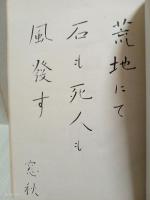 荒地にて
石も死人も
風發す
窓秋